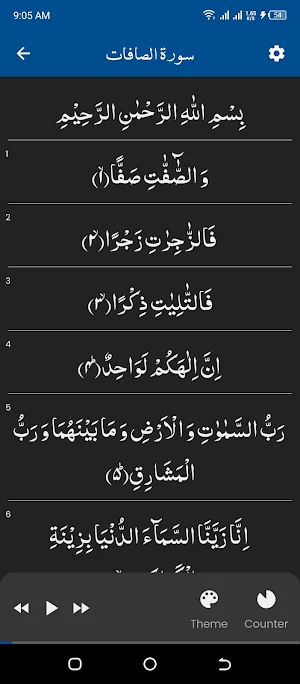 9:05 AM 1.85 K/s 54
سورة الصافات
بِسْمِ اللّٰهِ الرَّحْمٰنِ الرَّحِيْمِ
1
وَالصّٰٓفّٰتِ صَفًّا ﴿١﴾
2
فَالزّٰجِرٰتِ زَجْرًا ﴿٢﴾
3
فَالتّٰلِيٰتِ ذِكْرًا ﴿٣﴾
4
اِنَّ اِلٰهَكُمْ لَوَاحِدٌ ﴿۴﴾
5
رَبُّ السَّمٰوٰتِ وَالْاَرْضِ وَمَا بَيْنَهُمَا وَرَبُّ
الْمَشَارِقِ ﴿۵﴾
6
اِنَّا زَيَّنَّا السَّمَآءَ الدُّنْيَا بِزِيْنَةِ
Theme Counter